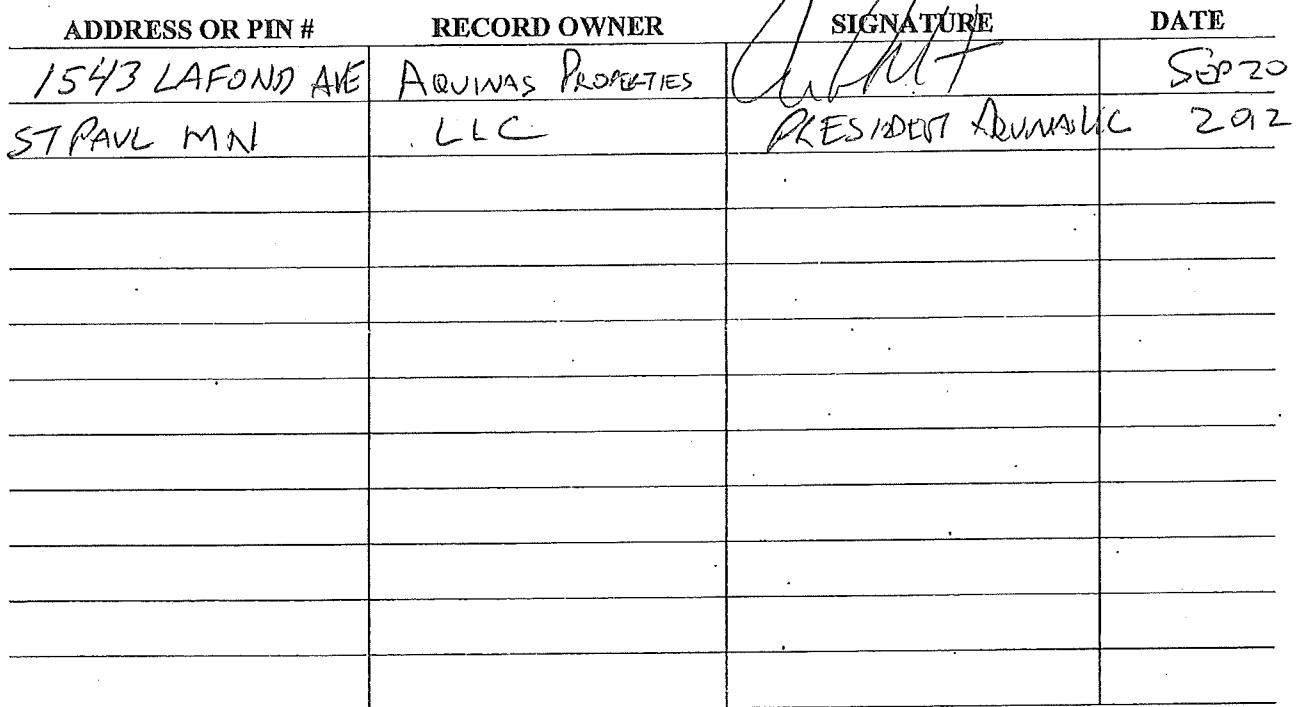 ADDRESS OR PIN # RECORD OWNER SIGNATURE DATE
1543 LAFOND AVE AQUINAS PROPERTIES SEP 20
ST PAUL MN LLC PRESIDENT AQUINAS LLC 2012